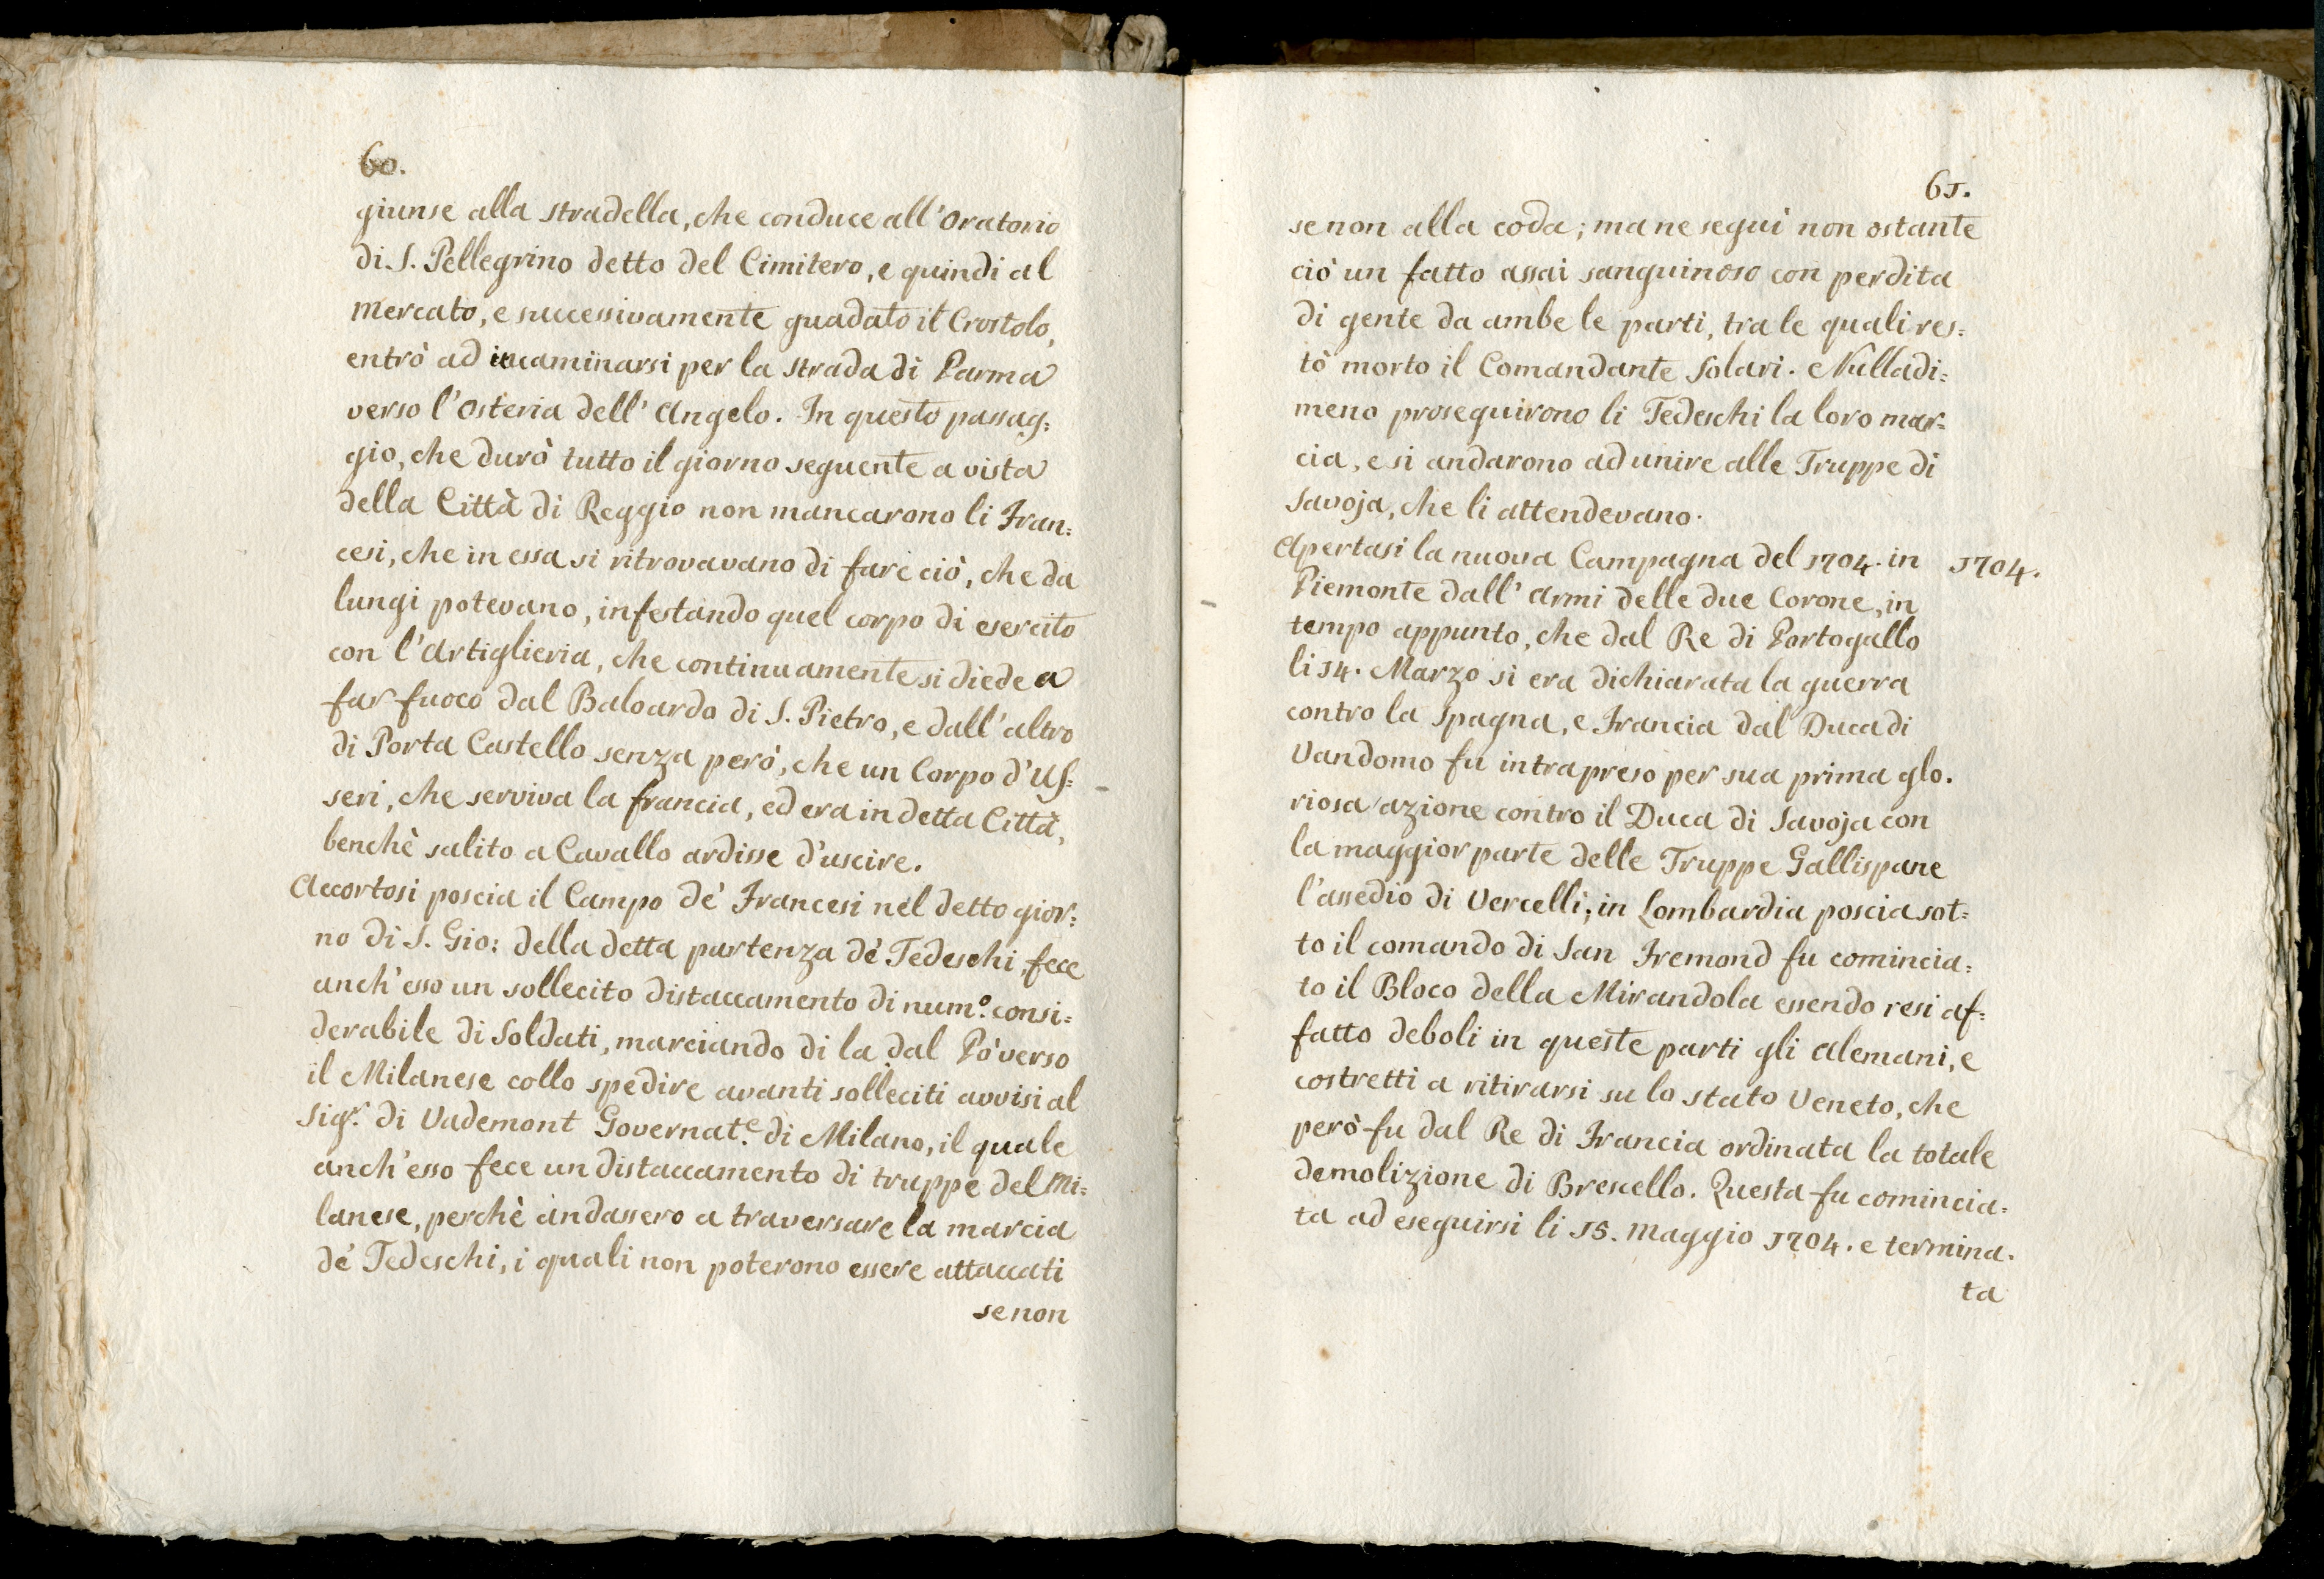 60.
giunse alla stradella, che conduce all'Oratorio
di S. Pellegrino detto del Cimitero, e quindi al
Mercato, e successivamente guadato il Crostolo,
entrò ad incaminarsi per la strada di Parma
verso l'Osteria dell'Angelo. In questo passag=
gio, che durò tutto il giorno seguente a vista
della Città di Reggio non mancarono li Fran=
cesi, che in essa si ritrovavano di fare ciò, che da
lungi potevano, infestando quel corpo di esercito
con l'Artiglieria, che continuamente si diede a
far fuoco dal Baloardo di S. Pietro, e dall'altro
di Porta Castello senza però, che un Corpo d'Us=
seri, che serviva la francia, ed era in detta Città,
benchè salito a Cavallo ardisse d'uscire.
Accortosi poscia il Campo de' Francesi nel detto gior=
no di S. Gio: della detta partenza de' Tedeschi, fece
anch'esso un sollecito distaccamento di num.º consi=
derabile di Soldati, marciando di la dal Pò verso
il Milanese collo spedire avanti solleciti avvisi al
Sig.r di Vademont Governat.e di Milano, il quale
anch'esso fece un distaccamento di truppe del Mi=
lanese, perchè andassero a traversare la marcia
de' Tedeschi, i quali non poterono essere attaccati
se non
61.
se non alla coda; ma ne seguì non ostante
ciò un fatto assai sanguinoso con perdita
di gente da ambe le parti, tra le quali res=
tò morto il Comandante Solari. Nulladi=
meno proseguirono li Tedeschi la loro mar=
cia, e si andarono ad unire alle Truppe di
Savoja, che li attendevano.
Apertasi la nuova Campagna del 1704. in 1704.
Piemonte dall'Armi delle due Corone, in
tempo appunto, che dal Re di Portogallo
li 14. Marzo si era dichiarata la guerra
contro la Spagna, e Francia dal Duca di
Vandomo fu intrapreso per sua prima glo.
riosa azione contro il Duca di Savoja con
la maggior parte delle Truppe Gallispane
l'assedio di Vercelli; in Lombardia poscia sot=
to il comando di San Fremond fu comincia=
to il Bloco della Mirandola essendo resi af=
fatto deboli in queste parti gli Alemani, e
costretti a ritirarsi su lo stato Veneto, che
però fu dal Re di Francia ordinata la totale
demolizione di Brescello. Questa fu comincia=
ta ad eseguirsi li 15. Maggio 1704. e termina.
ta